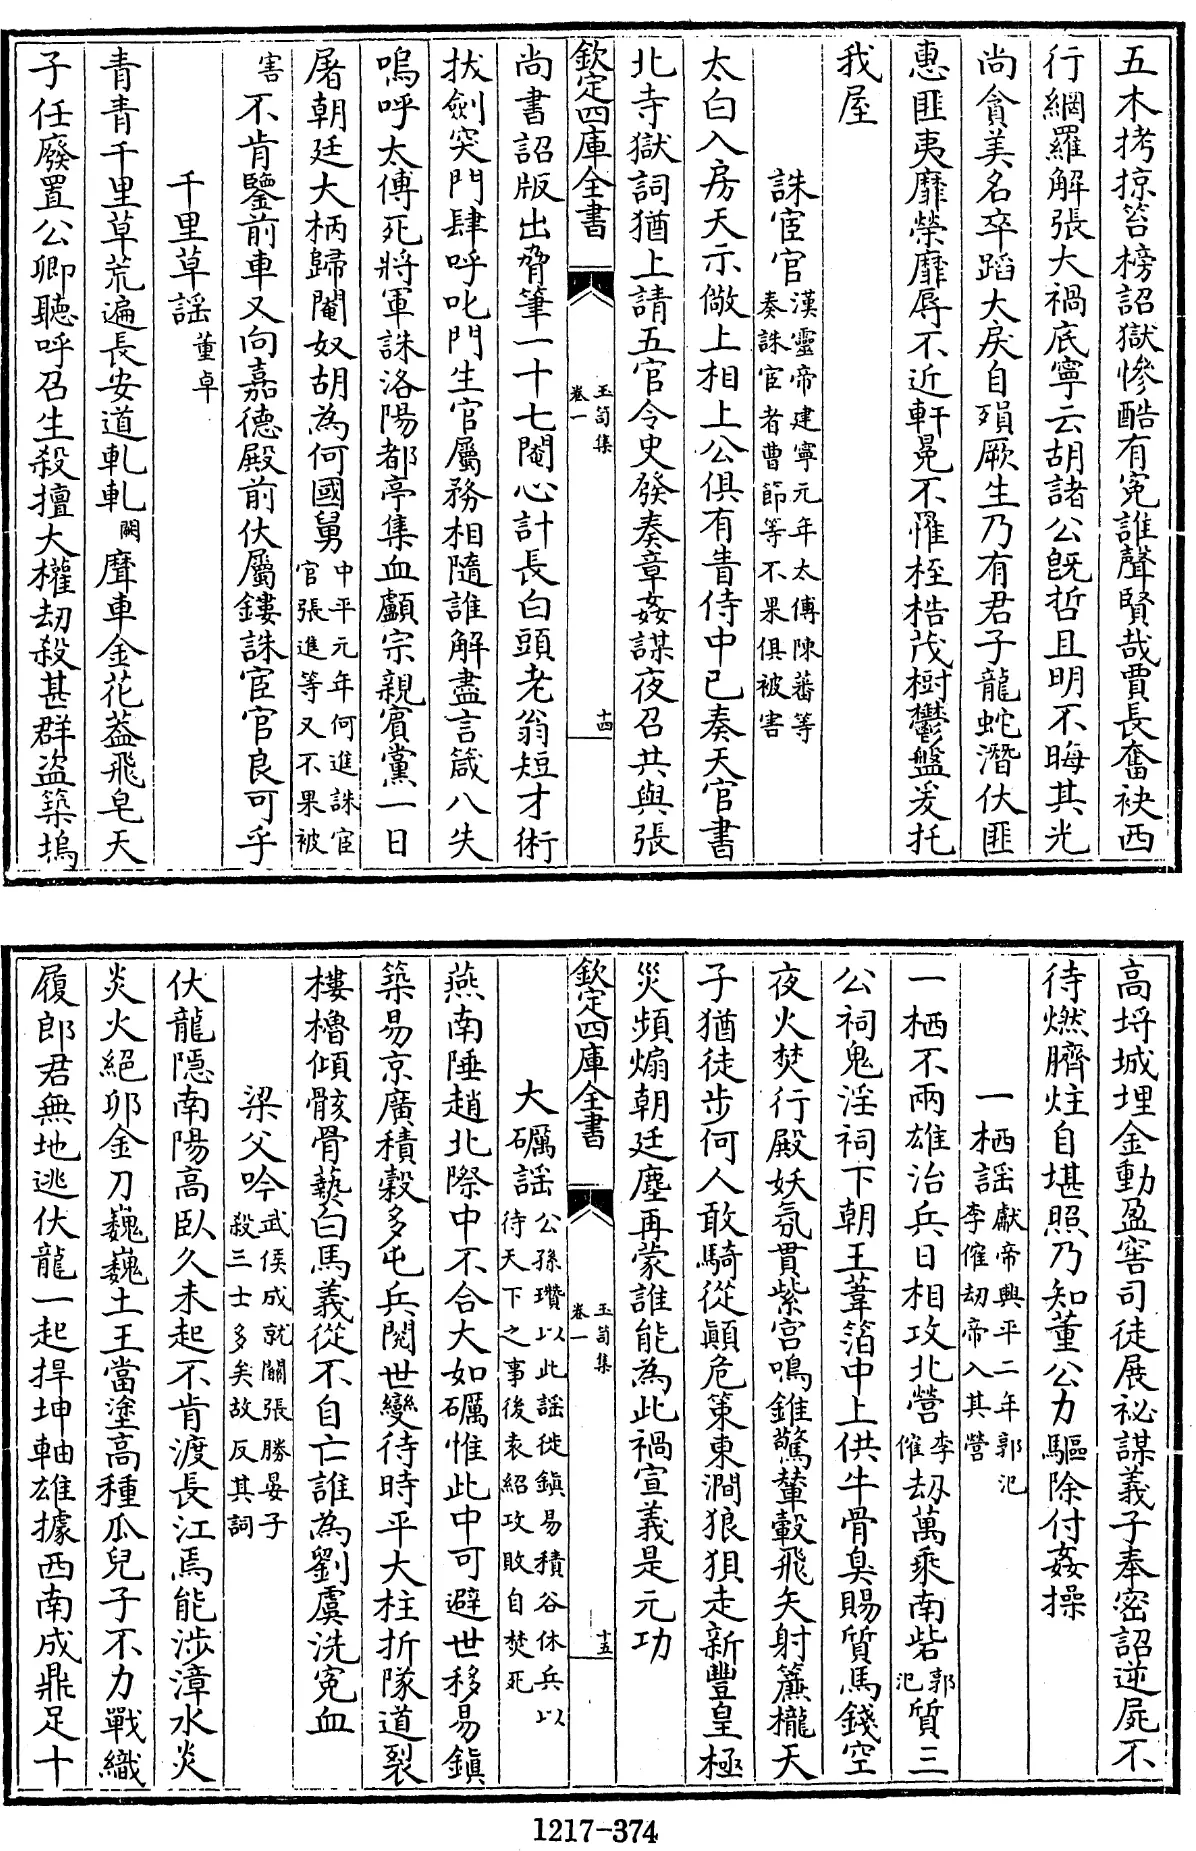 五木拷掠笞榜詔獄慘酷有寃誰聲賢哉賈長奮袂西
行網羅解張大禍底寧云胡諸公既哲且明不晦其光
尚貪美名卒蹈大戾自殞厥生乃有君子龍蛇潛伏匪
惠匪夷靡榮靡辱不近軒冕不罹桎梏茂樹鬱盤爰托
我屋
誅宦官漢靈帝建寧元年太傅陳蕃等
奏誅宦者曹節等不果俱被害
太白入房天示儆上相上公俱有眚侍中已奏天官書
北寺獄詞猶上請五官令史發奏章姦謀夜召共與張
欽定四庫全書
玉笥集
卷一
十四
尚書詔版出脅筆一十七閹心計長白頭老翁短才術
拔劍突門肆呼叱門生官屬務相隨誰解盡言箴八失
嗚呼太傅死將軍誅洛陽都亭集血顱宗親賓黨一日
屠朝廷大柄歸閹奴胡為何國舅中平元年何進誅宦
官張進等又不果被
害不肯鑒前車又向嘉德殿前伏屬鏤誅宦官良可乎
千里草謠董卓
青青千里草荒遍長安道軋軋闕聲車金花葢飛皂天
子任廢置公卿聽呼召生殺擅大權劫殺甚群盜築塢
高埒城埋金動盈窖司徒展祕謀義子奉密詔逆屍不
待燃臍炷自堪照乃知董公力驅除付姦操
一栖謠獻帝興平二年郭汜
李傕劫帝入其營
一栖不兩雄治兵日相攻北營李傕劫萬乘南砦郭汜質三
公祠鬼淫祠下朝王葦箔中上供牛骨臭賜質馬錢空
夜火焚行殿妖氛貫紫宮鳴錐驚輦轂飛矢射簾櫳天
子猶徒步何人敢騎從顛危策東澗狼狽走新豐皇極
災頻煽朝廷塵再蒙誰能為此禍宣義是元功
欽定四庫全書
玉笥集
卷一
十五
大礪謠公孫瓚以此謠徙鎮易積谷休兵以
待天下之事後袁紹攻敗自焚死
燕南陲趙北際中不合大如礪惟此中可避世移易鎮
築易京廣積穀多屯兵閱世變待時平大柱折隊道裂
樓櫓傾骸骨爇白馬義從不自亡誰為劉虞洗寃血
梁父吟武侯成就關張勝晏子
殺三士多矣故反其詞
伏龍隱南陽高臥久未起不肯渡長江焉能涉漳水炎
炎火絕卯金刀巍巍土王當塗高種瓜兒子不力戰織
履郎君無地逃伏龍一起捍坤軸雄據西南成鼎足十
1217-374